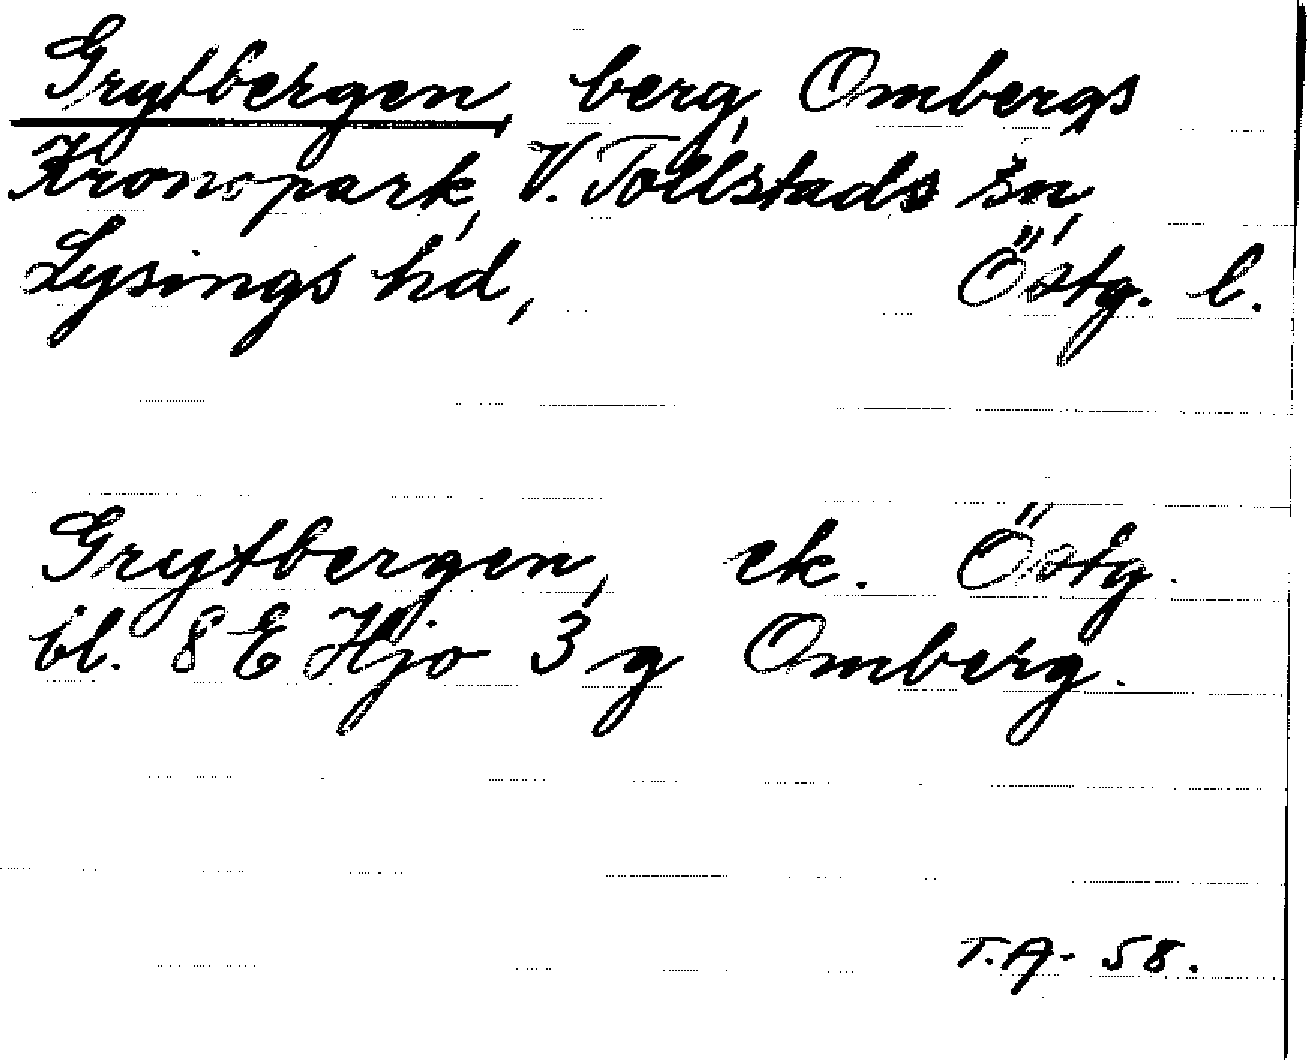 Grytbergen berg, Ombergs
Kronopark, V. Tollstads sn,
Lysings hd, Östg. l.
Grytbergen, ek. Östg.
bl. 8 E Hjo 3 g Omberg.
T.A. 58.